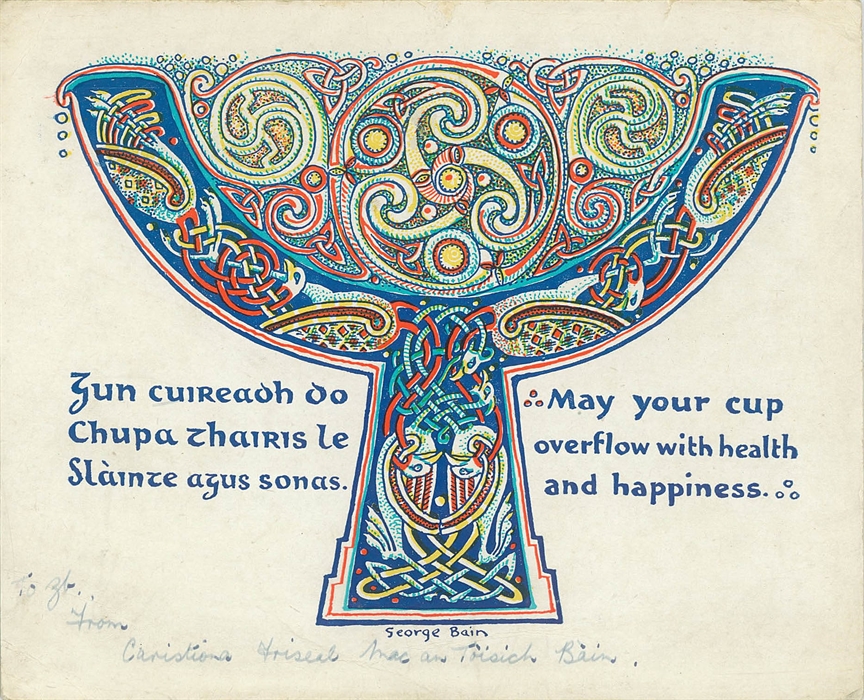 Gun cuireadh do
Chupa thairis le
Slàinte agus sonas.
May your cup
overflow with health
and happiness.
George Bain
From
Cairistiona Hriseal Mac an Toisich Bain.